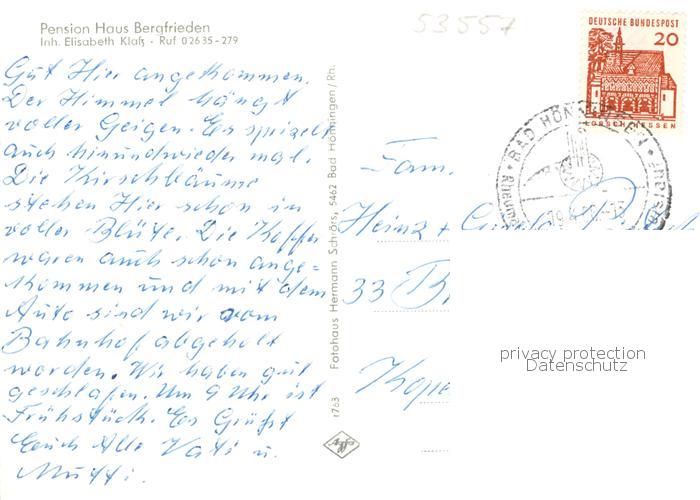 Pension Haus Bergfrieden
Inh. Elisabeth Klaß · Ruf 02635-279
53557
DEUTSCHE BUNDESPOST
20
LORSCH/HESSEN
BAD HÖNNINGEN
Gut Hier angekommen.
Der Himmel hängt
voller Geigen. Es
auch hinundwieder mal.
Die Kirschbäume
stehen Hier schon in
voller Blüte. Die Koffer
waren auch schon ange=
kommen und mit dem
Auto sind wir vom
Bahnhof abgeholt
worden. Wir haben gut
geschlafen. Um 9 Uhr ist
Frühstück. Es Grüßt
Euch Alle Vati u.
Mutti.
Fotohaus Hermann Schrörs, 5462 Bad Hönningen/Rh.
1763
Agfa
Fam.
Heinz +
33 B
Kope
privacy protection
Datenschutz